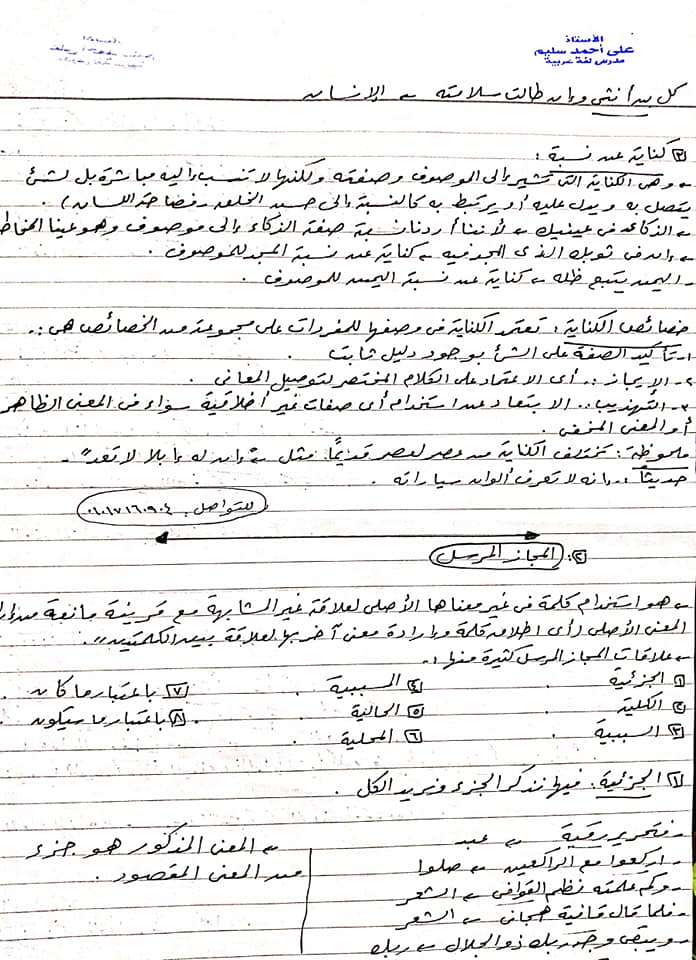 الأستاذ
على أحمد سليم
مدرس لغة عربية
كل بن أنثى وإن طالت سلامته ← الإنسان
٣ كناية عن نسبة :
← وهى الكناية التى تشير إلى الموصوف وصفته ولكنها لا تنسب إليه مباشرة بل لشئ
يتصل به ويدل عليه أو يرتبط به كالنسبة إلى حسن الخلق وفصاحة اللسان ) .
← الذكاء فى عينيك ← لأننا أردنا نسبة صفة الذكاء إلى موصوف وهو عينا المخاطب
← إن فى ثوبك الذى المجد فيه ← كناية عن نسبة المجد للموصوف .
- اليمن يتبع ظله ← كناية عن نسبة اليمن للموصوف .
خصائص الكناية : تعتمد الكناية فى وصفها للمفردات على مجموعة من الخصائص هى :.
١- تأكيد الصفة على الشئ بوجود دليل ثابت .
٢- الإيجاز :. أى الاعتماد على الكلام المختصر لتوصيل المعانى .
٣- التهذيب :. الابتعاد عن استخدام أى صفات غير أخلاقية سواء فى المعنى الظاهر
أو المعنى المخفى .
ملحوظة : تختلف الكناية من عصر لعصر قديمًا مثل ← إن له إبلا لا تعد " .
حديثًا :. إنه لا تعرف ألوان سياراته .
للتواصل . ٠١٠١٧١٦٠٩٠٤
٢: المجاز المرسل
← هو استخدام كلمة فى غير معناها الأصلى لعلاقة غير المشابهة مع قرينة مانعة من إرا
المعنى الأصلى ( أى اطلاق كلمة وإرادة معنى آخر بها لعلاقة بين الكلمتين " .
← علاقات المجاز المرسل كثيرة منها :.
١ الجزئية . ٤ المسببية . ٧ باعتبار ما كان .
٢ الكلية . ٥ الحالية . ٨ باعتبار ما سيكون .
٣ السببية . ٦ المحلية .
١ الجزئية . فيها نذكر الجزء ونريد الكل .
- فتحرير رقبة ← عبد
- اركعوا مع الراكعين ← صلوا
- وكم علمته نظم القوافى ← الشعر
- فلما قال قافية هجانى ← الشعر
- ويبقى وجه ربك ذو الجلال ← ربك
← المعنى المذكور هو جزء
من المعنى المقصود .